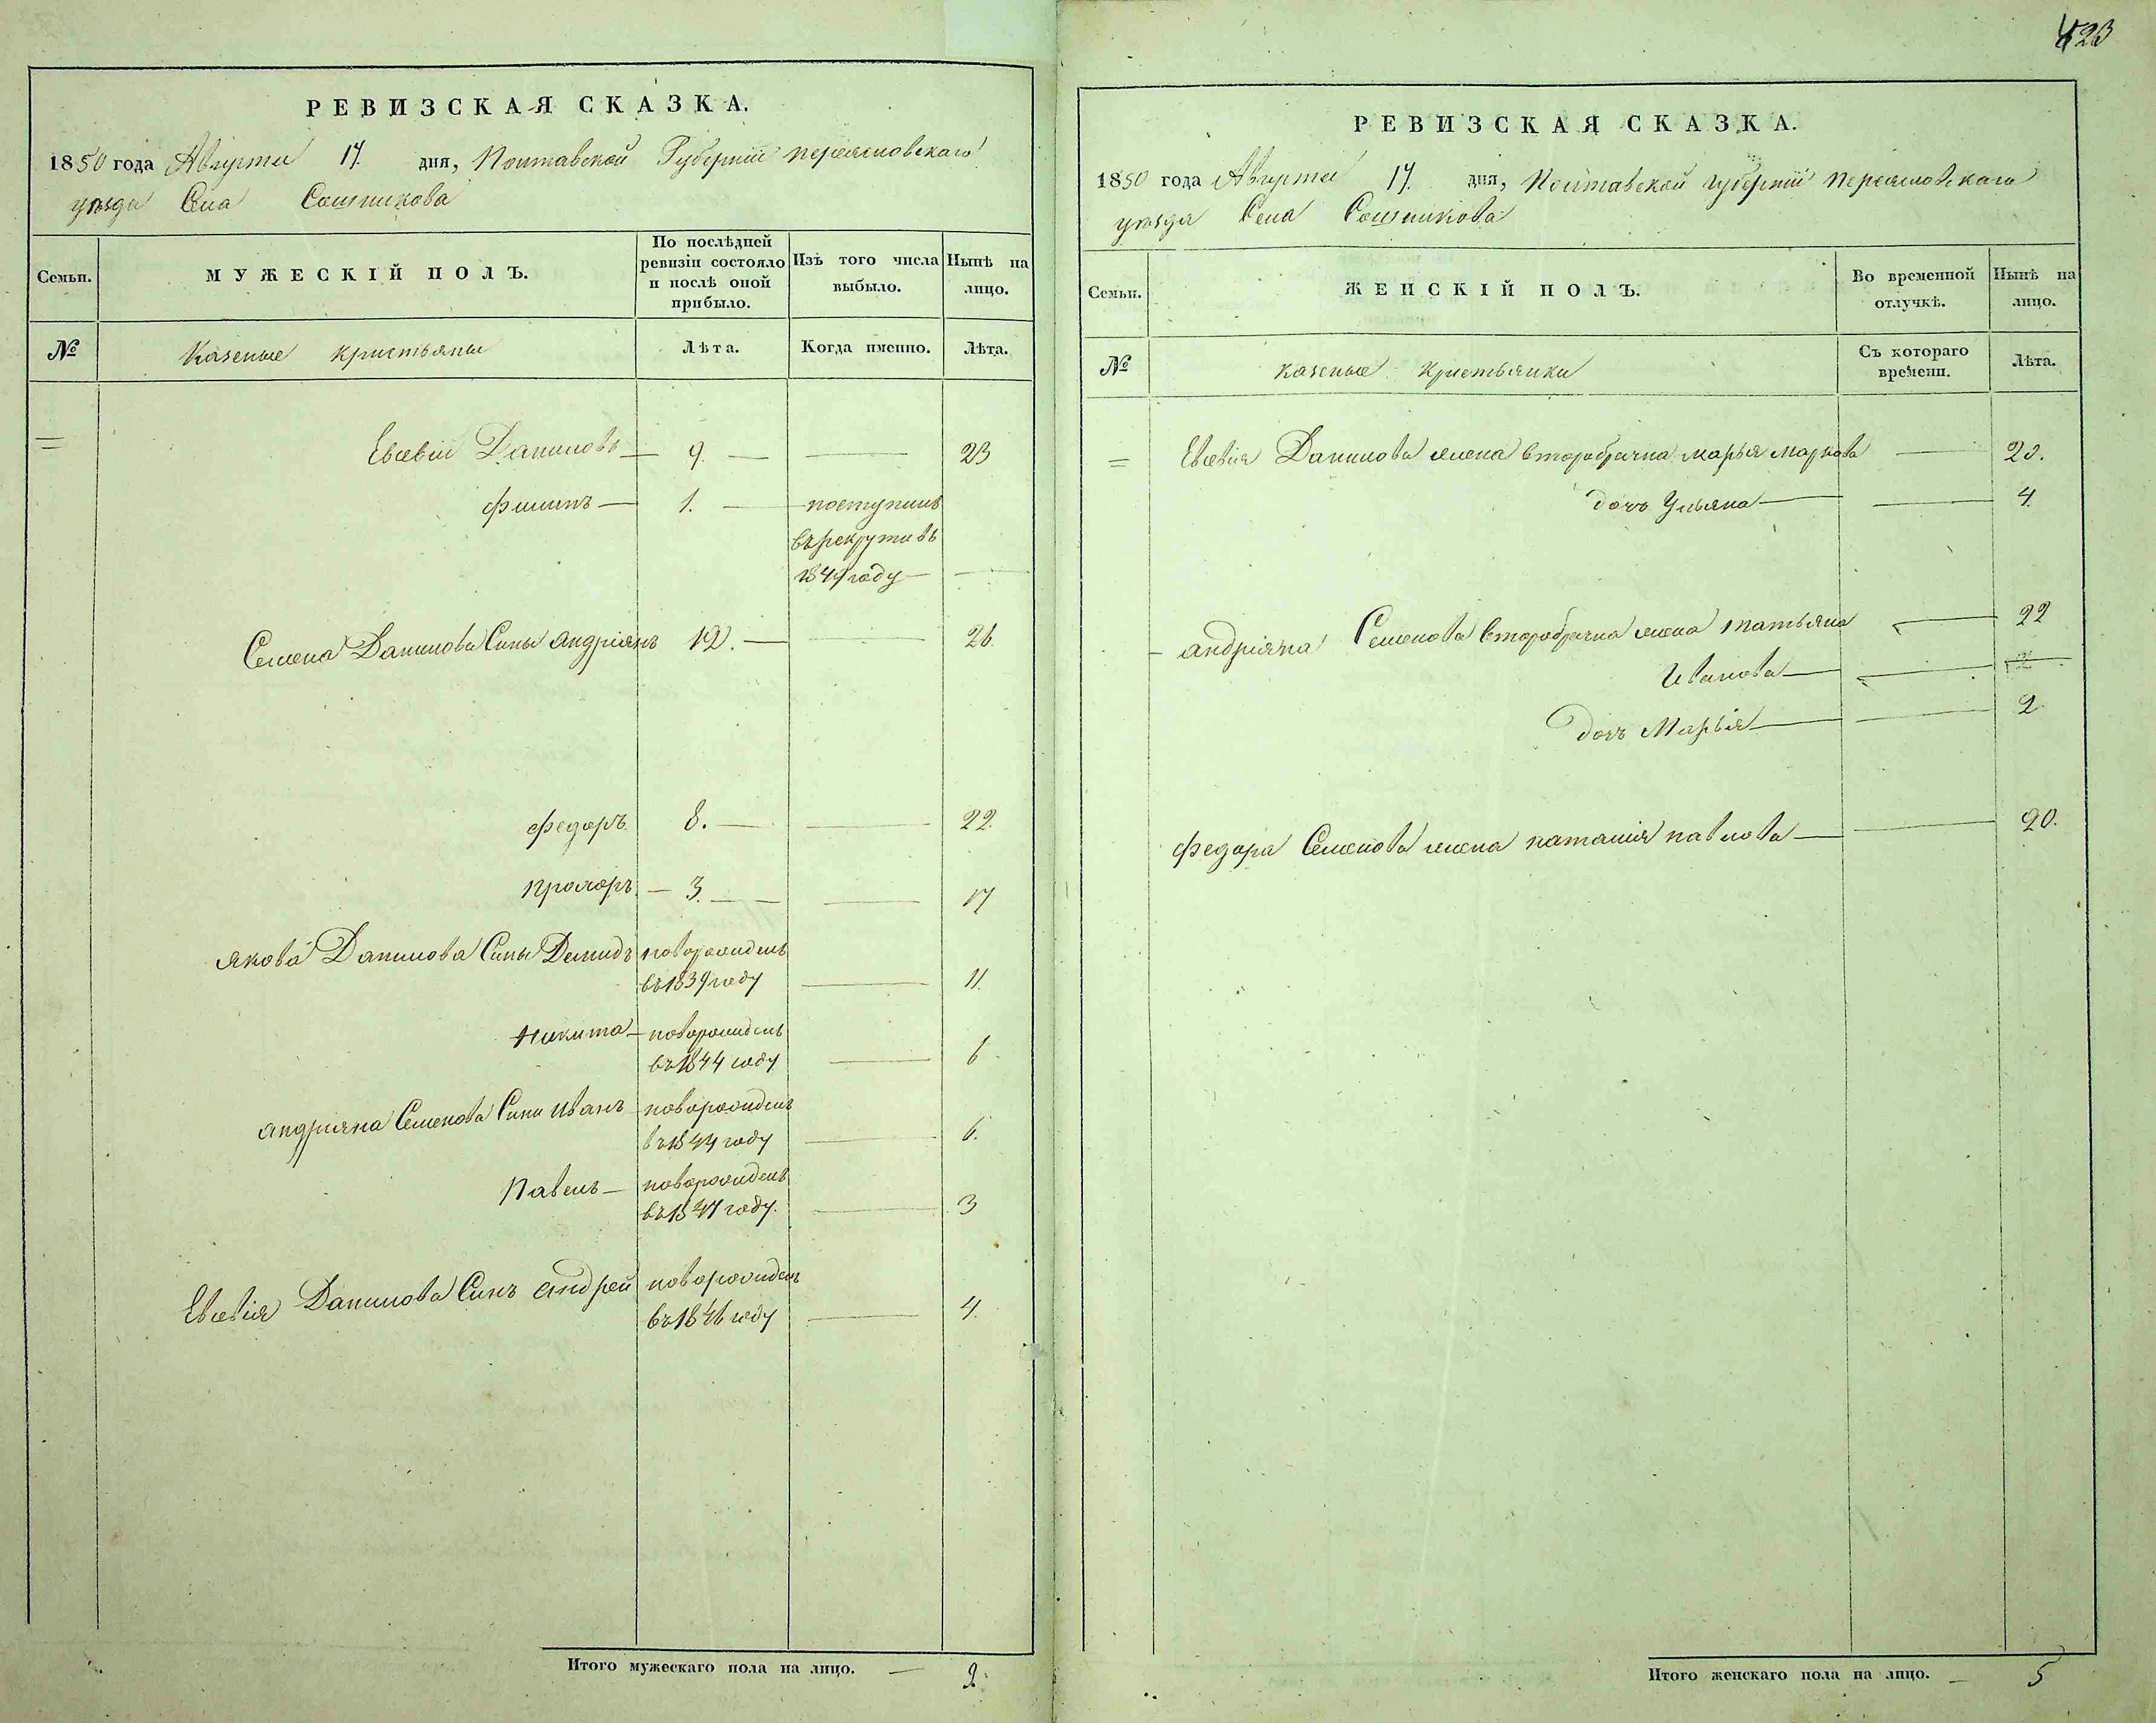 РЕВИЗСКАЯ СКАЗКА.
1850 года Августа 17. дня, Полтавской Губерніи переясловскаго
уезда Села Сошникова
Семьи.
МУЖЕСКІЙ ПОЛЪ.
По послѣдней ревизіи состояло и послѣ оной прибыло.
Изъ того числа выбыло.
Нынѣ на лицо.
№
Казеные кристьяны
Лѣта.
Когда именно.
Лѣта.
Евсевій Даниловъ — 9. — — 23
филипъ — 1. — поступилъ
в рекруты въ
1849 году — —
Семена Данилова Сины андріянъ 12. — — 26.
федоръ 8. — — 22.
прохоръ — 3. — — 17
якова Данилова Сины Демидъ новорожденъ
въ 1839 году — 11.
Никита — новорожденъ
въ 1844 году — 6
андріяна Семенова Сини иванъ новорожденъ
въ 1844 году — 6.
Павелъ — новорожденъ
въ 1847 году. — 3
Евсевія Данилова Синъ андрей новорожденъ
въ 1846 году — 4.
Итого мужескаго пола на лицо. — 9.
423
РЕВИЗСКАЯ СКАЗКА.
1850 года Августа 17. дня, Полтавской губерній Переясловскаго
уезда Села Сошникова
Семьи.
ЖЕНСКІЙ ПОЛЪ.
Во временной отлучкѣ.
Нынѣ на лицо.
№
казеные кристьянки
Съ котораго времени.
Лѣта.
Евсевія Данилова жена второбрачна марья маркова — 20.
дочъ Ульяна — — 4.
андріяна Семенова второбрачна жена татьяна — 22
Иванова — —
дочъ Марья — — 2
федора Семенова жена наталія павлова — — 20.
Итого женскаго пола на лицо. — 5